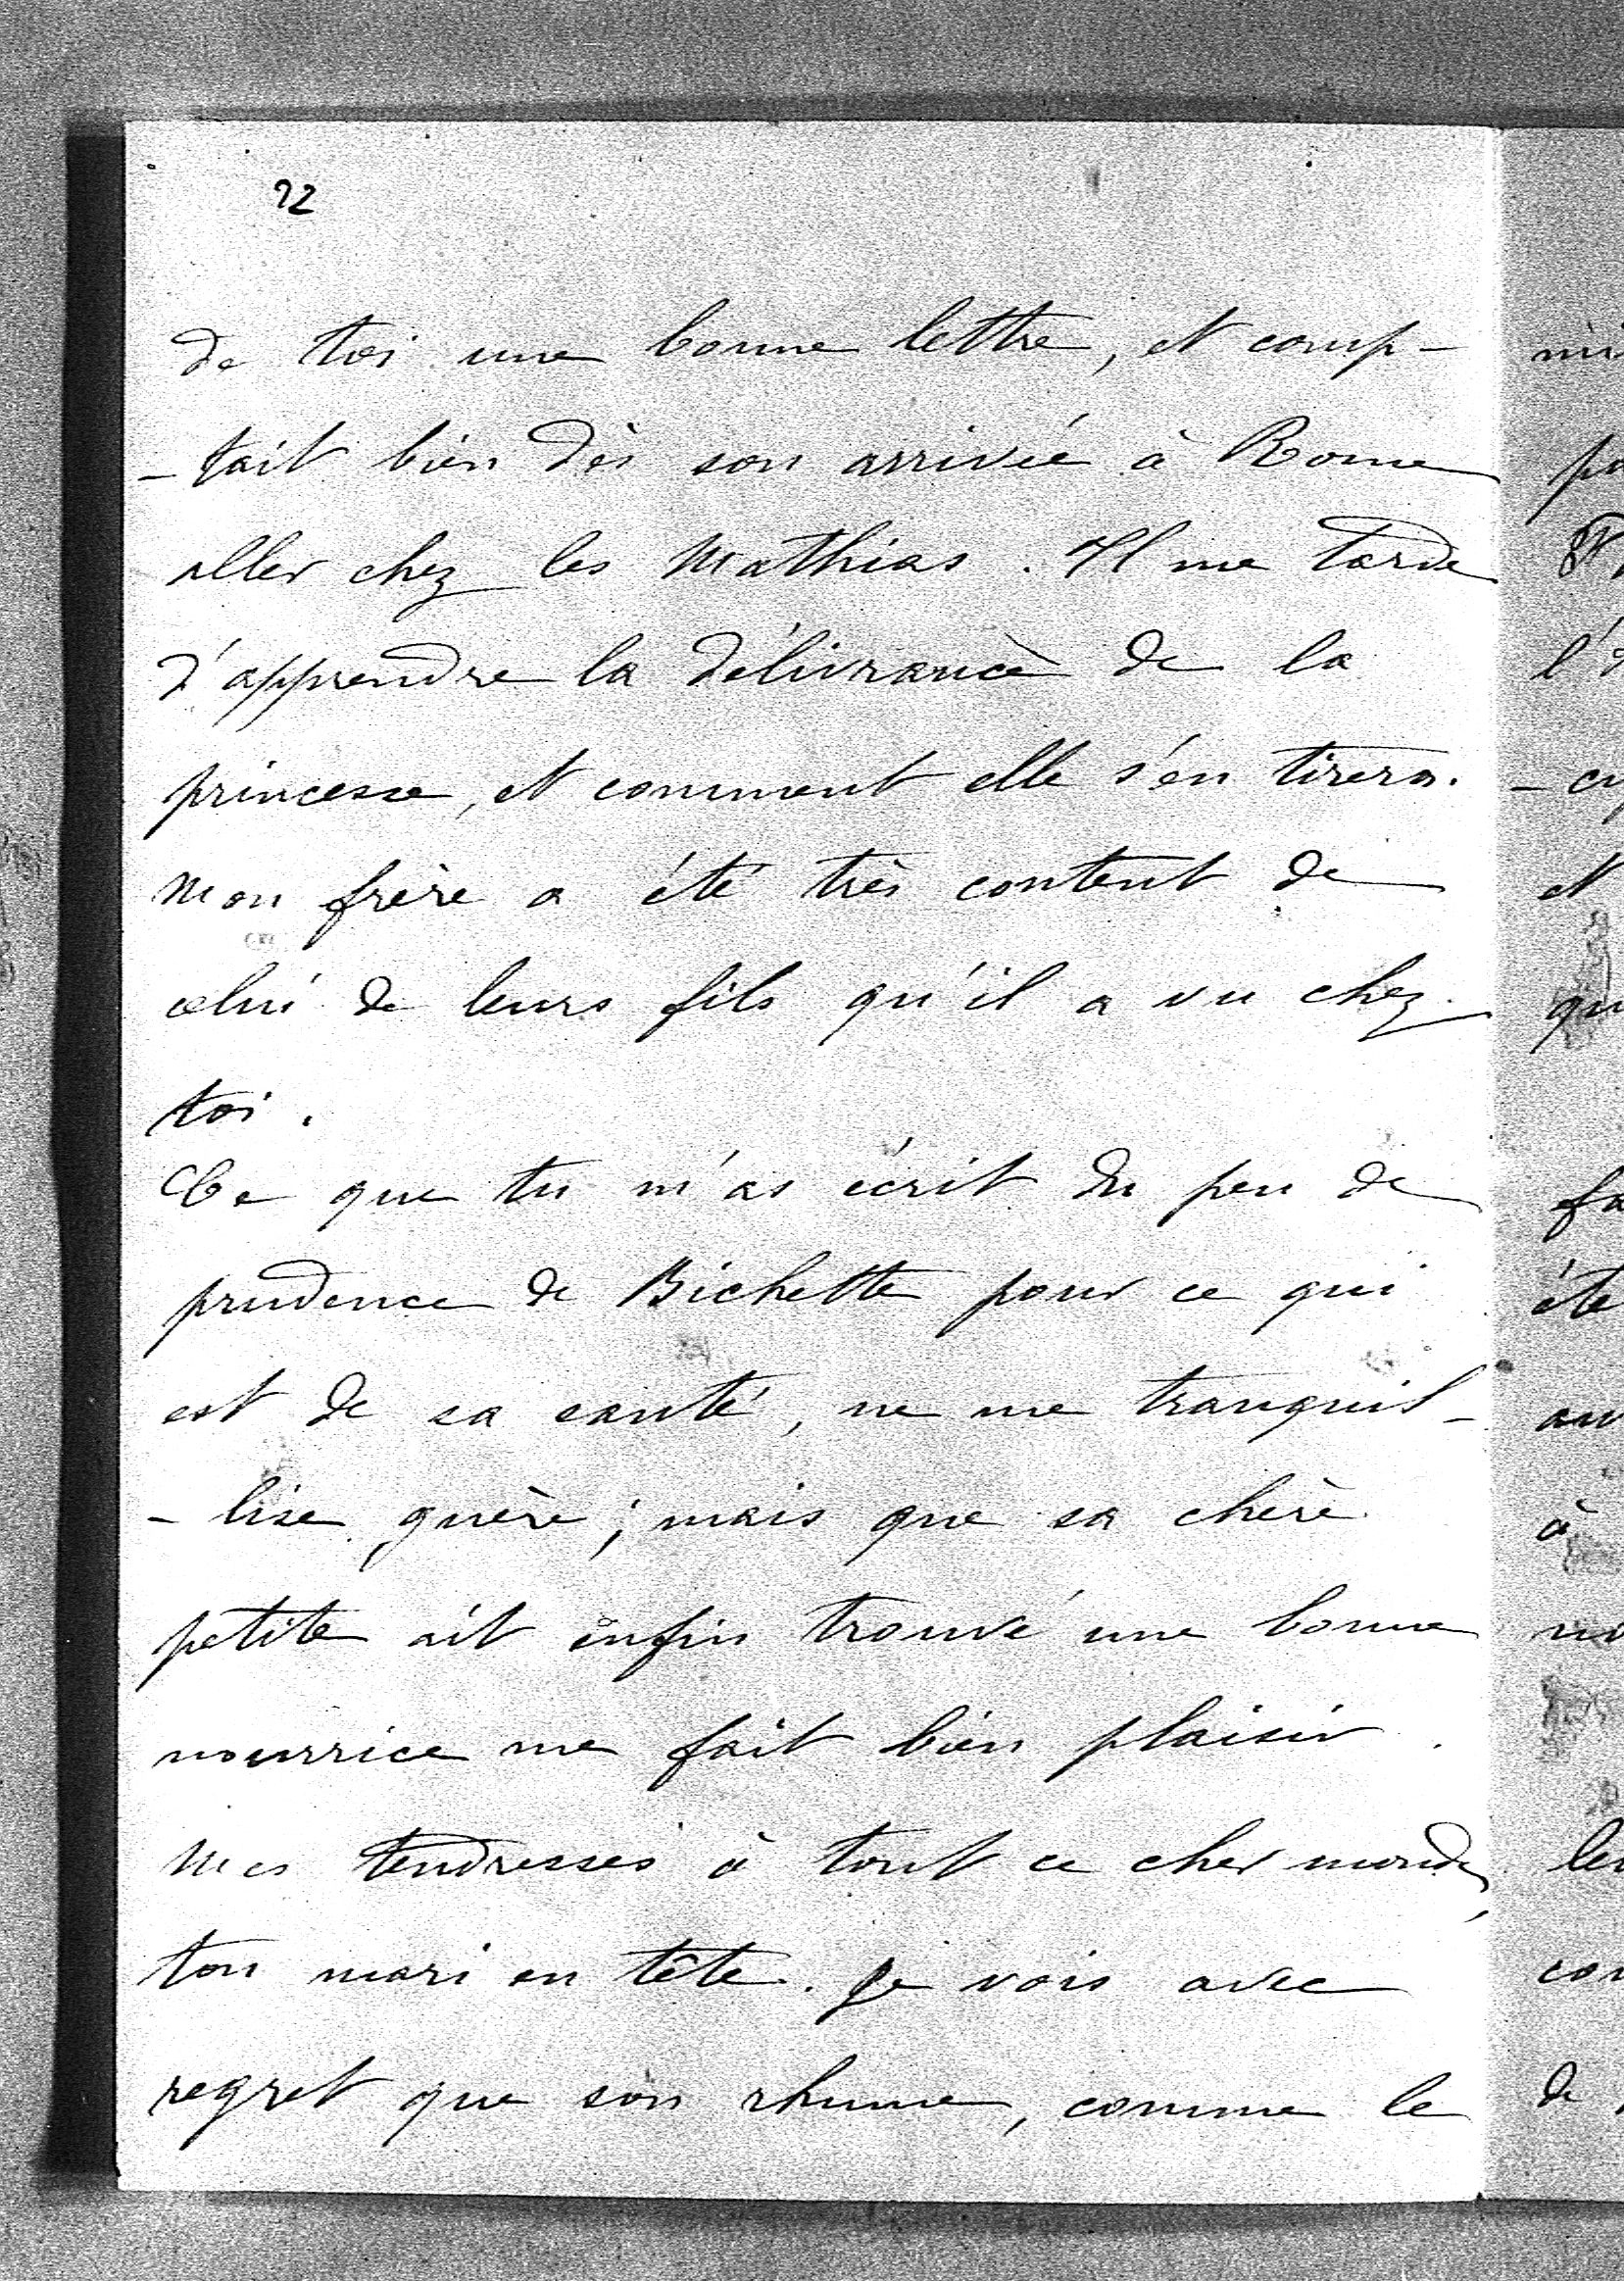 22
de toi une bonne lettre, et comp-
-tait bien dès son arrivée à Rome
aller chez les Mathias. Il me tarde
d'apprendre la délivrance de la
princesse, et comment elle s'en tirera.
Mon frère a été très content de
celui de leurs fils qu'il a vu chez
toi.
Ce que tu m'as écrit du peu de
prudence de Bichette pour ce qui
est de sa santé, ne me tranquil-
-lise guère; mais que sa chère
petite ait enfin trouvé une bonne
nourrice me fait bien plaisir.
Mes tendresses à tout ce cher monde,
ton mari en tête. Je vois avec
regret que son rhume, comme le